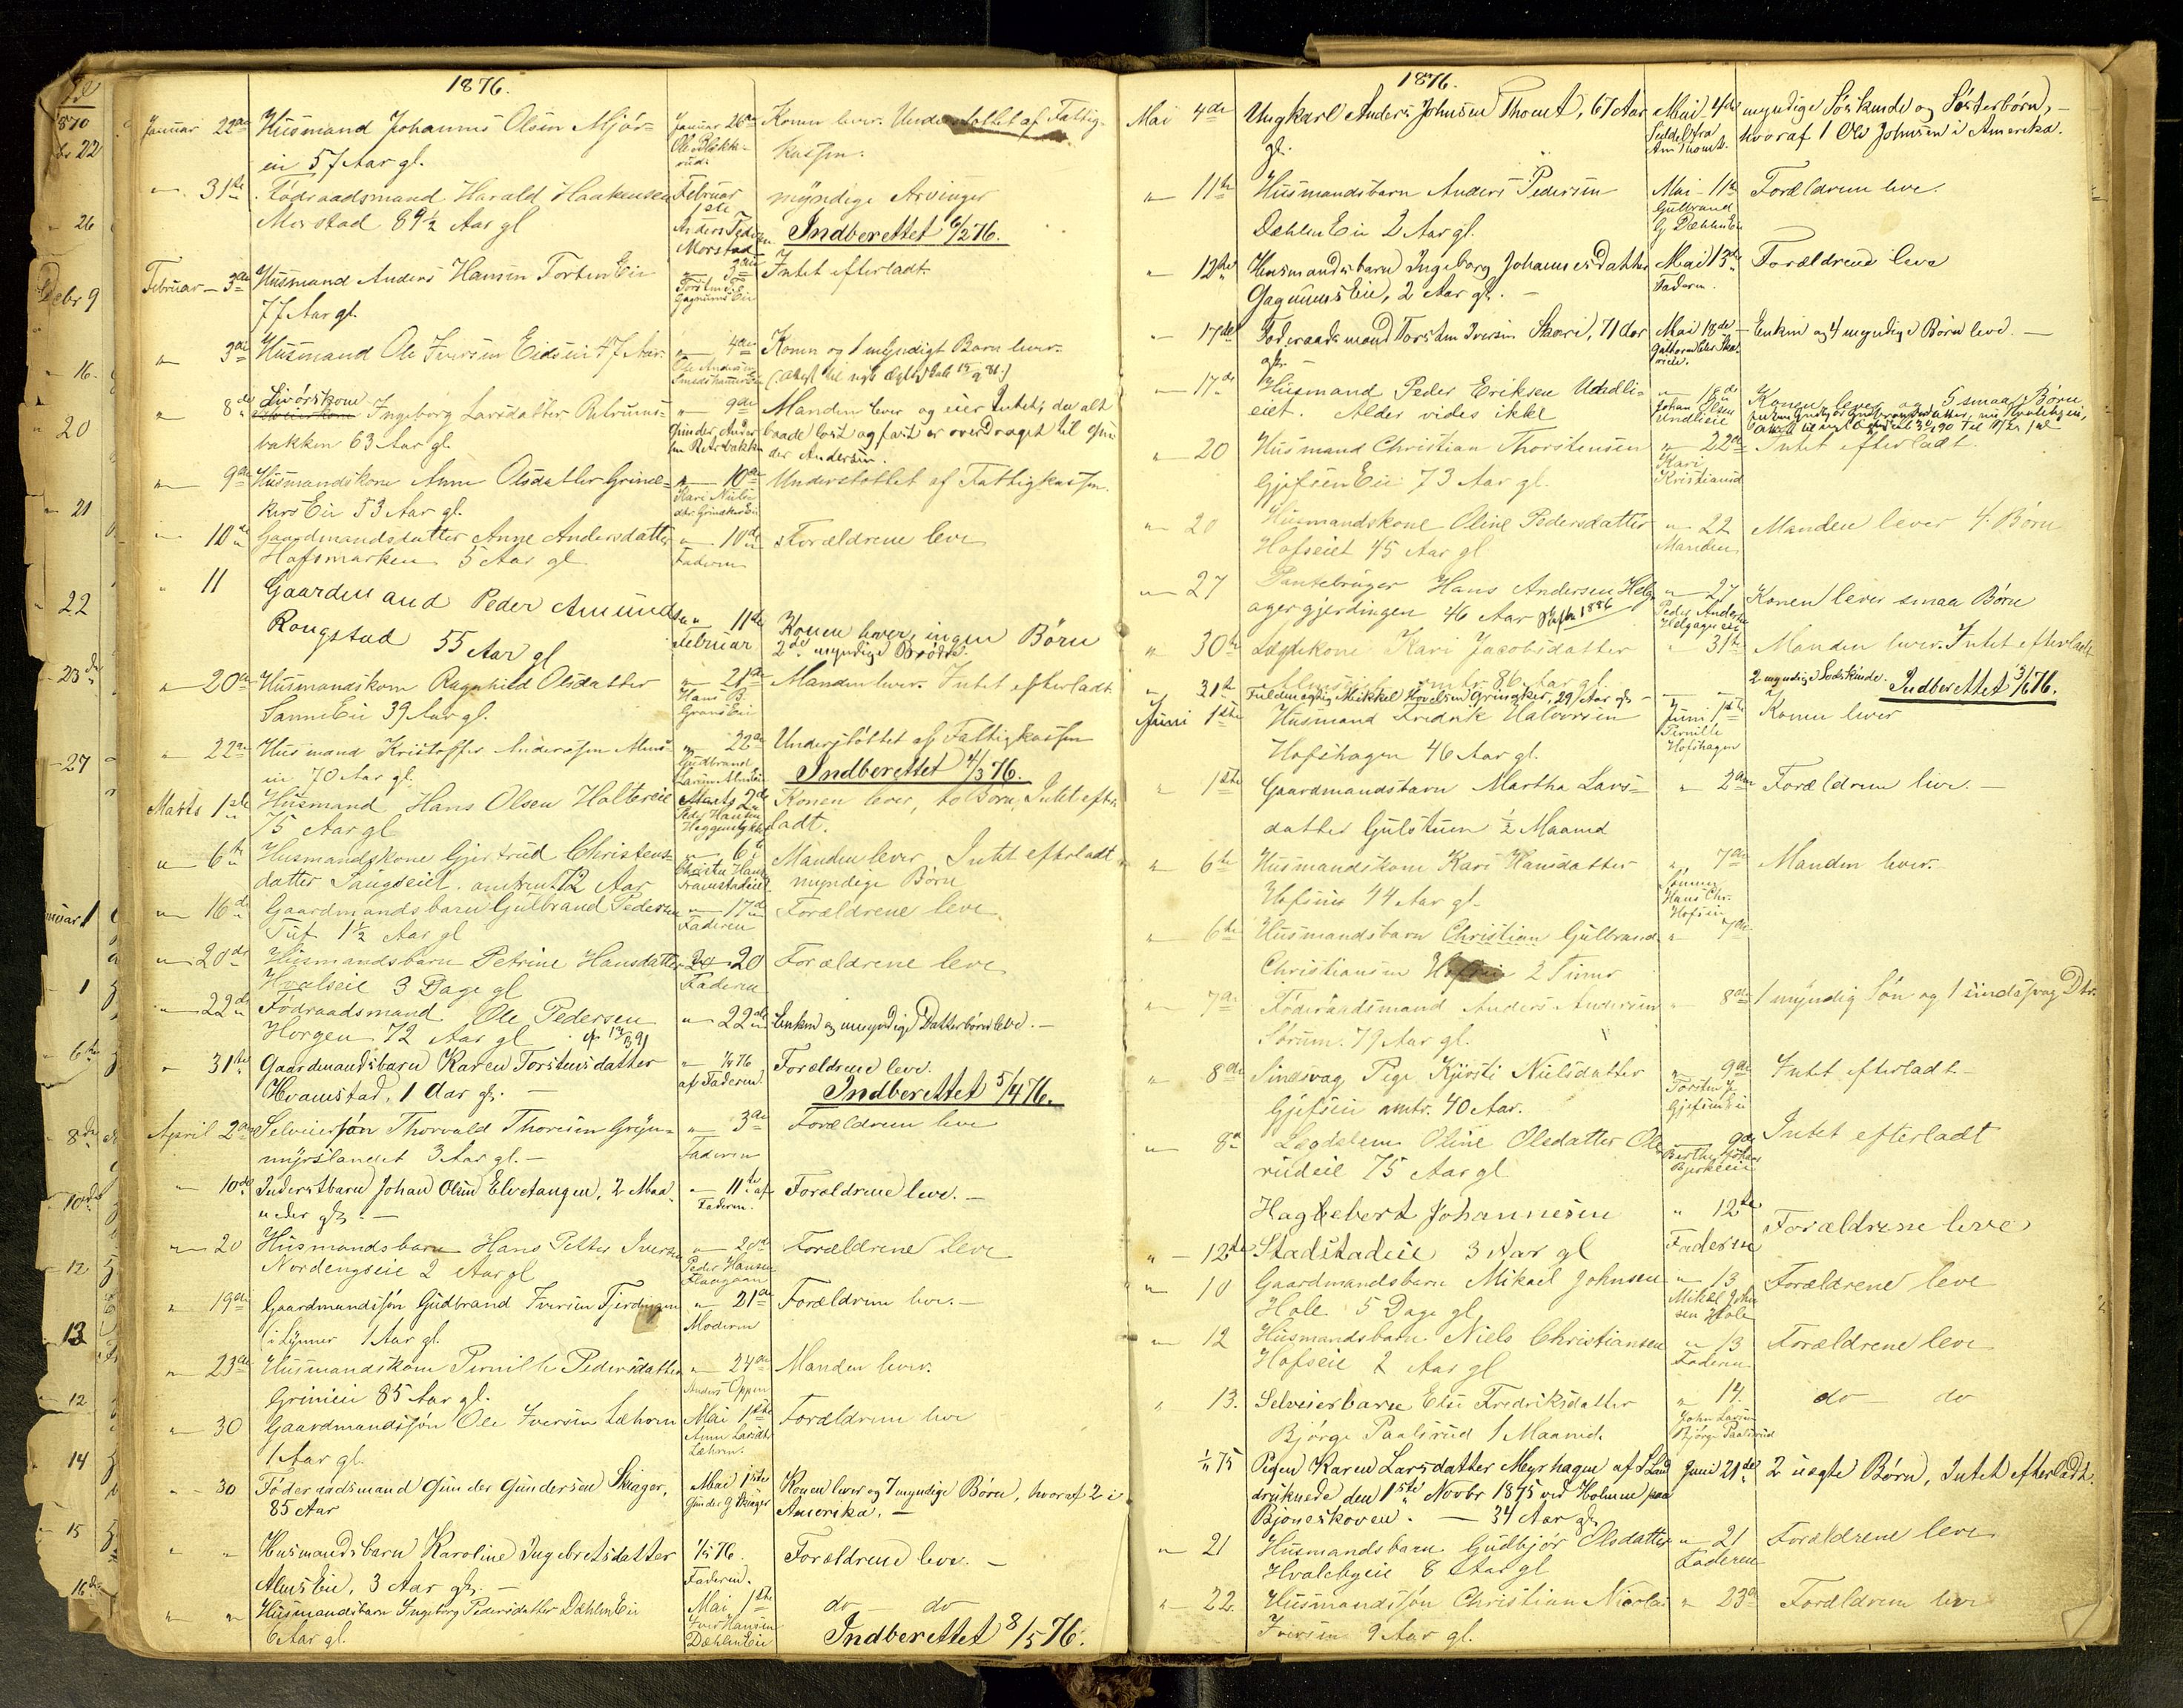 1876.
Januar 22de Husmand Johannes Olsen Mjör- Januar 26de Konen lever. Understöttet af Fattig-
ein 57 Aar gl. Ole Blekke- rud. kassen.
" 31te Föderaadsmand Harald Haakensen Februar myndige Arvinger
Morstad 89½ Aar gl 1ste Anders Peders Morstad Indberettet 6/2 76.
Februar 3de Husmand Anders Hansen Torsten Eie " 3die Intet efterladt.
77 Aar gl.
" 3de Husmand Ole Iversen Eidseie 47 Aar. " 4de Konen og 1 myndigt Barn lever.
" 8de Livörskone Ingeborg Larsdatter Retrums- " 9de Manden lever og eier Intet, da alt
bakken 63 Aar gl. Gunder Ander sen Retrumsbakken baade löst og fast er overdraget til Gun
der Andersen.
" 9de Husmandskone Anne Olsdatter Grina- " 10de Understöttet af Fattigkassen.
kers Eie 53 Aar gl. Kari Niels dtr. Grinaker Eie
" 10de Gaardmandsdatter Anne Andersdatter " 10de Forældrene leve
Hofsmarken 5 Aar gl Faderen
" 11 Gaardmand Peder Amunds " 11te Konen lever, ingen Börn
Rongstad 55 Aar gl Februar 2de myndige Brödre.
" 20de Husmandskone Ragnhild Olsdatter " 21de Manden lever. Intet efterladt.
Sanne Eie 39 Aar gl. Hans B. Grans Eie
" 22de Husmand Kristoffer Anderssen Alms- " 22de Understöttet af Fattigkassen
ein 70 Aar gl. Gudbrand Larsen Alms Eie Indberettet 4/3 76.
Marts 1ste Husmand Hans Olsen Haltereie Marts 2de Konen lever, to Börn, Intet efter
75 Aar gl Peder Hansen ladt.
" 6te Husmandskone Gjertrud Christens " 6te Manden lever Intet efterladt
datter Saugseiet. omtrent 72 Aar myndige Börn
" 16de Gaardmandsbarn Gulbrand Pedersen " 17de Forældrene leve
Tuf 1½ Aar gl Faderen
" 20de Husmandsbarn Petrine Hansdatter 20 Forældrene leve
Hvalseie 3 Dage gl Faderen
" 22de Födraadsmand Ole Pedersen " 22de Enken og umyndige Datterbörn leve. -
Horgen 72 Aar gl
" 31te Gaardmandsbarn Karen Torstensdatter " 1/4 76 Forældrene leve.
Hvamstad, 1 Aar gl. - af Faderen. Indberettet 5/4 76.
April 2den Selveiersön Thorvald Thoresen Gryn- " 3de Forældrene leve
myrslandet 3 Aar gl. - Faderen
" 10de Inderstbarn Johan Olsen Elvetangen, 2 Maa- " 11te af Forældrene leve. -
neder gl. - Faderen.
" 20 Husmandsbarn Hans Petter Iversen " 20de Forældrene leve
Nordengseie 2 Aar gl Peder Hansen
" 19de Gaardmandssön Gudbrand Iversen Fjerdingen " 21de Forældrene leve. -
i Lynner 1 Aar gl. Moderen
" 23de Husmandskone Pernille Pedersdatter " 24de Manden lever.
Grinieie 85 Aar gl. Anders Oppen
" 30 Gaardmandssön Ole Iversen Læhren Mai 1ste Forældrene leve
1 Aar gl. Anne Larsdtr Læhren.
" 30 Föderaadsmand Gunder Gundersen Skiager, Mai 1ste Konen lever og 7 myndige Börn, hvoraf 2 i
85 Aar Gunder G Skiager Amerika. -
" " Husmandsbarn Karoline Ingebretsdatter 1/5 76. Forældrene leve. -
Alms Eie, 3 Aar gl. - Faderen.
" " Husmandsbarn Ingeborg Pedersdatter Dæhlen Eie Mai 1ste do do
6 Aar gl. Iver Hansen Dæhlen Eie Indberettet 8/5 76.
1876.
Mai 4de Ungkarl Anders Johnsen Thomt, 67 Aar Mai 4de myndige Söskende og Sösterbörn, -
gl. Seddel fra Am Thomt. hvoraf 1 Ole Johnsen i Amerika.
" 11te Husmandsbarn Anders Pedersen Mai 11te Forældrene leve.
Dæhlen Eie 2 Aar gl. Gulbrand G Dæhlen Eie
" 12te Husmandsbarn Ingeborg Johannesdatter Mai 13de Forældrene leve
Gagnums Eie, 2 Aar gl. - Faderen.
" 17de Föderaadsmand Torsten Iversen Skaari, 71 Aar Mai 18de Enken og 4 myndige Börn leve. -
gl.
" 17de Husmand Peder Eriksen Undeli- " 18de Konen lever og 5 smaa Börn
eiet. Alder vides ikke Johan Olsen Undlieie
" 20 Husmand Christian Thorstensen " 22de Intet efterladt.
Gjefsen Eie 73 Aar gl. Kari Kristiansd
" 20 Husmandskone Oline Pedersdatter " 22 Manden lever 4 Börn
Hofseiet 45 Aar gl Manden
" 27 Pantebruger Hans Andersen Helg- " 27 Konen lever smaa Börn
agergjerdingen 46 Aar Peder Anders Helgagereie
" 30te Lægdekone Kari Jacobsdatter " 31te Manden lever. Intet efterladt
omtr. 86 Aar gl.
" 31te Fuldmægtig Mikkel Hovelsen Grinaker, 29 Aar gl. - 2 myndige Södskende. Indberettet 3/6 76.
Juni 1ste Husmand Fredrik Halvorsen Juni 1ste Konen lever
Hofshagen 46 Aar gl. Pernille Hofshagen
" 1ste Gaardmandsbarn Martha Lars- " 2den Forældrene leve. -
datter Gulstuen ½ Maaned
" 6te Husmandskone Kari Hansdatter " 7de Manden lever.
Hofseie 44 Aar gl. Sönnen Hans Chr. Hofseie
" 6te Husmandsbarn Christian Gulbrand " 7de
Christiansen Hofseie 2 Timer
" 7de Föderaadsmand Anders Andersen " 8de 1 myndig Sön og 1 sindssvag Dtr.
Sörum. 79 Aar gl.
" 8de Sindsvag Pige Kjersti Nielsdatter " 9de Intet efterladt
Gjefseie omtr. 40 Aar. Torsten J. Gjefsen Eie
" 8de Lægdslem Oline Olsdatter Ole- 9de Intet efterladt
rudeie 75 Aar gl
Haglebert Johannesen " 12te Forældrene leve
" 12te Stadstadeie 3 Aar gl Faderen
" 10 Gaardmandsbarn Mikael Johnsen " 13 Forældrene leve
Hole 5 Dage gl Mikkel John sen Hole
" 12 Husmandsbarn Niels Christiansen " 13 Forældrene leve
Hofseie 2 Aar gl Faderen
" 13. Selveierbarn Elie Fredriksdatter " 14 do - do
Bjørge Paalsrud 1 Maaned. John Larsen Bjørge Paalsrud
1/11 75 Pigen Karen Larsdatter Meyrhagen af S Land Juni 21de 2 uægte Börn, Intet efterladt.
druknede den 1ste Novbr 1875 ved Holmen paa
Bjoneskoven. - 34 Aar gl.
" 21 Husmandsbarn Gudbjör Olsdatter " 21 Forældrene leve
Hvalebyeie 8 Aar gl Faderen
" 22. Husmandssön Christian Nicolai " 23de Forældrene leve
Iversen 9 Aar gl.